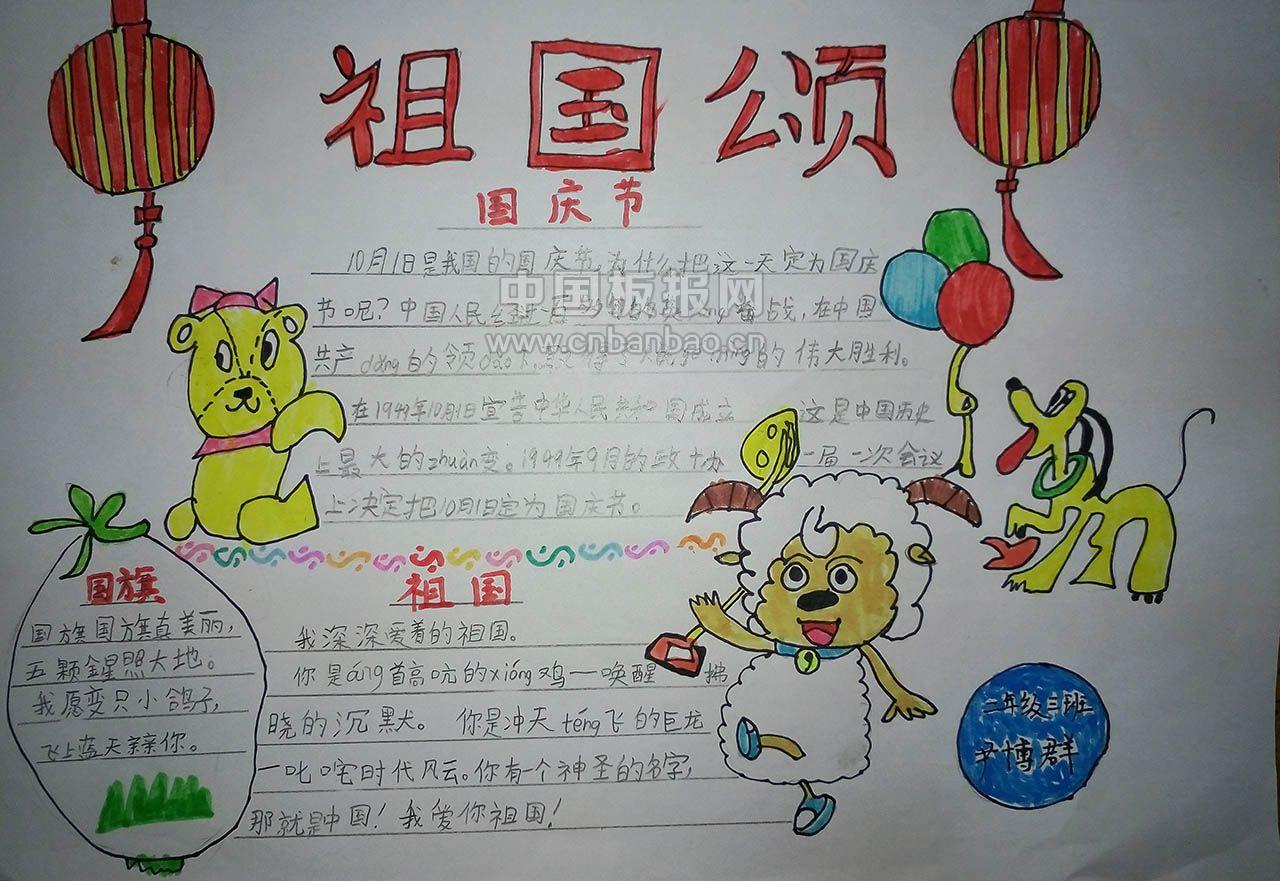 祖国颂
国庆节
10月1日是我国的国庆节,为什么把这一天定为国庆
节呢?中国人民经过 奋战,在中国
共产dǎng的领dǎo下, 的伟大胜利。
在1949年10月1日宣告中华人民共和国成立 这是中国历史
上最大的zhuǎn变。1949年9月的政协 一届一次会议
上决定把10月1日定为国庆节。
中国板报网
www.cnbanbao.cn
国旗
国旗国旗真美丽,
五颗金星照大地。
我愿变只小鸽子,
飞上蓝天亲亲你。
祖国
我深深爱着的祖国。
你是áng首高吭的xióng鸡一唤醒拂
晓的沉默。你是冲天téng飞的巨龙
一叱咤时代风云。你有一个神圣的名字,
那就是中国!我爱你祖国!
二年级三班
尹博群